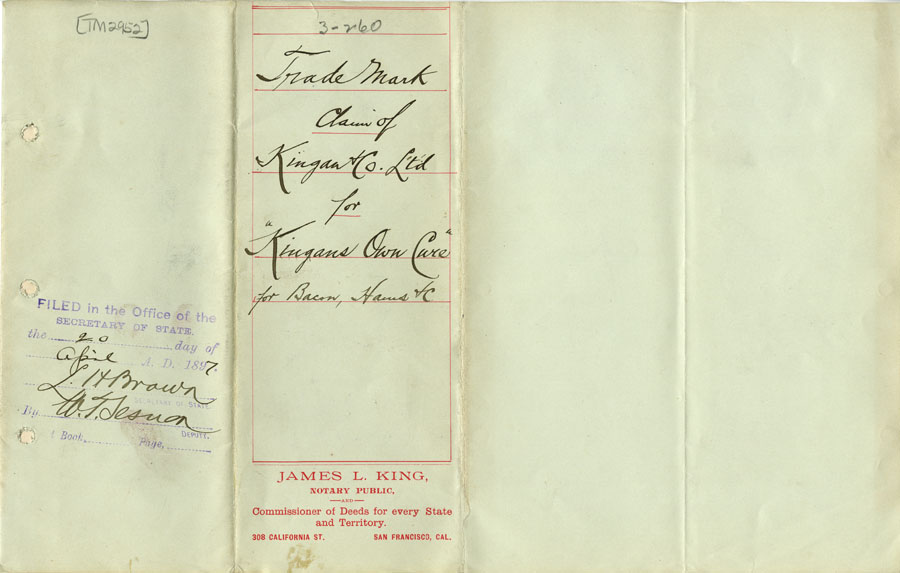 [TM2952]
FILED in the Office of the
SECRETARY OF STATE.
the 20 day of
April A. D. 1897.
L. H Brown
SECRETARY OF STATE.
By W. T. Sesnon
DEPUTY.
Book, Page,
3-260
Trade Mark
Claim of
Kingan & Co. L't'd
for
"Kingans Own Cure"
for Bacon, Hams &C
JAMES L. KING,
NOTARY PUBLIC,
—AND—
Commissioner of Deeds for every State
and Territory.
308 CALIFORNIA ST. SAN FRANCISCO, CAL.